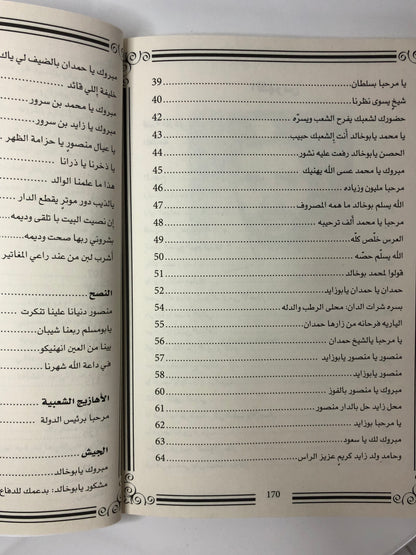 يا مرحبا بسلطان ........ 39
شيخ يسوى نظرنا ........ 40
حضورك لشعبك يفرح الشعب ويسرّه ........ 42
يا محمد يابوخالد أنت إلشعبك حبيب ........ 43
الحصن يابوخالد رفعت عليه نشور ........ 44
مبروك يا محمد عسى الله يهنيك ........ 45
يا مرحبا مليون وزياده ........ 46
الله يسلم بوخالد ما همه المصروف ........ 47
يا مرحبا يا محمد ألف ترحيبه ........ 48
العرس خلّص كلّه ........ 49
الله يسلّم حصّه ........ 50
قولوا لمحمد بوخالد ........ 51
حمدان يا حمدان يابوزايد ........ 52
بسره شرات الدان: محلى الرطب والدله ........ 54
الياريه فرحانه من زارها حمدان ........ 55
يا مرحبا يالشيخ حمدان ........ 56
منصور يا منصور يابوزايد ........ 57
منصور يابوزايد ........ 58
مبروك يا منصور بالفوز ........ 60
محل زايد حل بالدار منصور ........ 61
يا مرحبا بوزايد ........ 62
مبروك لك يا سعود ........ 63
وحامد ولد زايد كريم عزيز الراس ........ 64
170
مبروك يا حمدان بالضيف لي ياك
خليفة إللي قائد
مبروك يا محمد بن سرور
مبروك يا زايد بن سرور
يا عيال منصور يا حزامة الظهر
يا ذخرنا يا ذرانا
هذا ما علمنا الوالد
بالذيب دور موتر يقطع الدار
إن نصيت البيت با تلقى وديمه
بشروني ربها صحت وديمه
أشرب لبن من عند راعي المغاتير
النصح
منصور دنيانا علينا تنكرت
يابومسلم ربعنا شيبان
بينا من العين انهنيكو
في داعة الله شهرنا
الأهازيج الشعبية
مرحبا برئيس الدولة
الجيش
مبروك يابوخالد
مشكور يابوخالد: بدعمك للدفاع